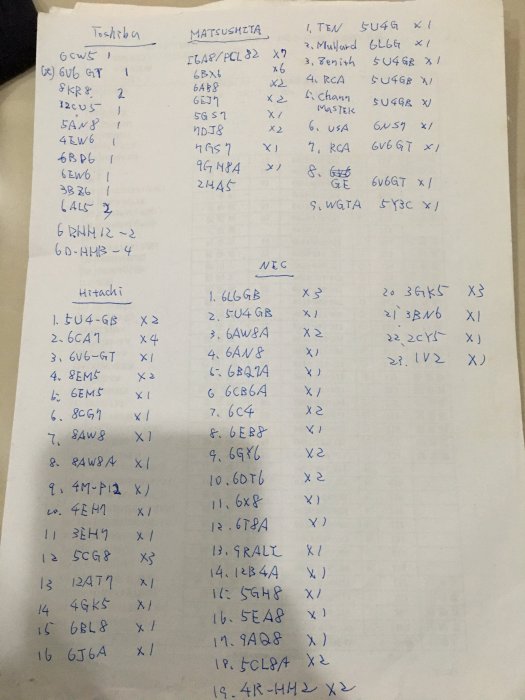 Toshiba
6CW5 1
(x) 6V6 GT 1
8KR8 2
12CU5 1
5AN8 1
4EW6 1
6BD6 1
6EW6 1
3BZ6 1
6AL5 2
6RHH12-2
6D-HHB-4
MATSUSHITA
16A8/PCL82 x7
6BX6 x6
6AB8 x2
6EJ7 x2
5GS7 x1
7DJ8 x2
7GS7 x1
9GH8A x1
2HA5
1. TEN 5U4G x1
2. Mullard 6L6G x1
3. Zenith 5U4GB x1
4. RCA 5U4GB x1
5. Chann Master 5U4GB x1
6. USA 6NS7 x1
7. RCA 6V6GT x1
8. GE 6V6GT x1
9. WGTA 5Y3C x1
Hitachi
1. 5U4-GB x2
2. 6CA7 x4
3. 6V6-GT x1
4. 8EM5 x2
5. 6EM5 x1
6. 8CG7 x1
7. 8AW8 x1
8. 8AW8A x1
9. 4M-P12 x1
10. 4EH7 x1
11 3EH7 x1
12 5CG8 x3
13 12AT7 x1
14 4GK5 x1
15 6BL8 x1
16 6J6A x1
NEC
1. 6L6GB x3
2. 5U4GB x1
3. 6AW8A x2
4. 6AN8 x1
5. 6BQ7A x1
6 6CB6A x1
7. 6C4 x2
8. 6EB8 x1
9. 6GY6 x2
10. 6DT6 x2
11. 6X8 x1
12. 6T8A x1
13. 9RAL1 x1
14. 12B4A x1
15. 5GH8 x1
16. 5EA8 x1
17. 9AQ8 x1
18. 5CL8A x2
19. 4R-HH2 x2
20 3GK5 x3
21. 3BN6 x1
22. 2CY5 x1
23. 1V2 x1